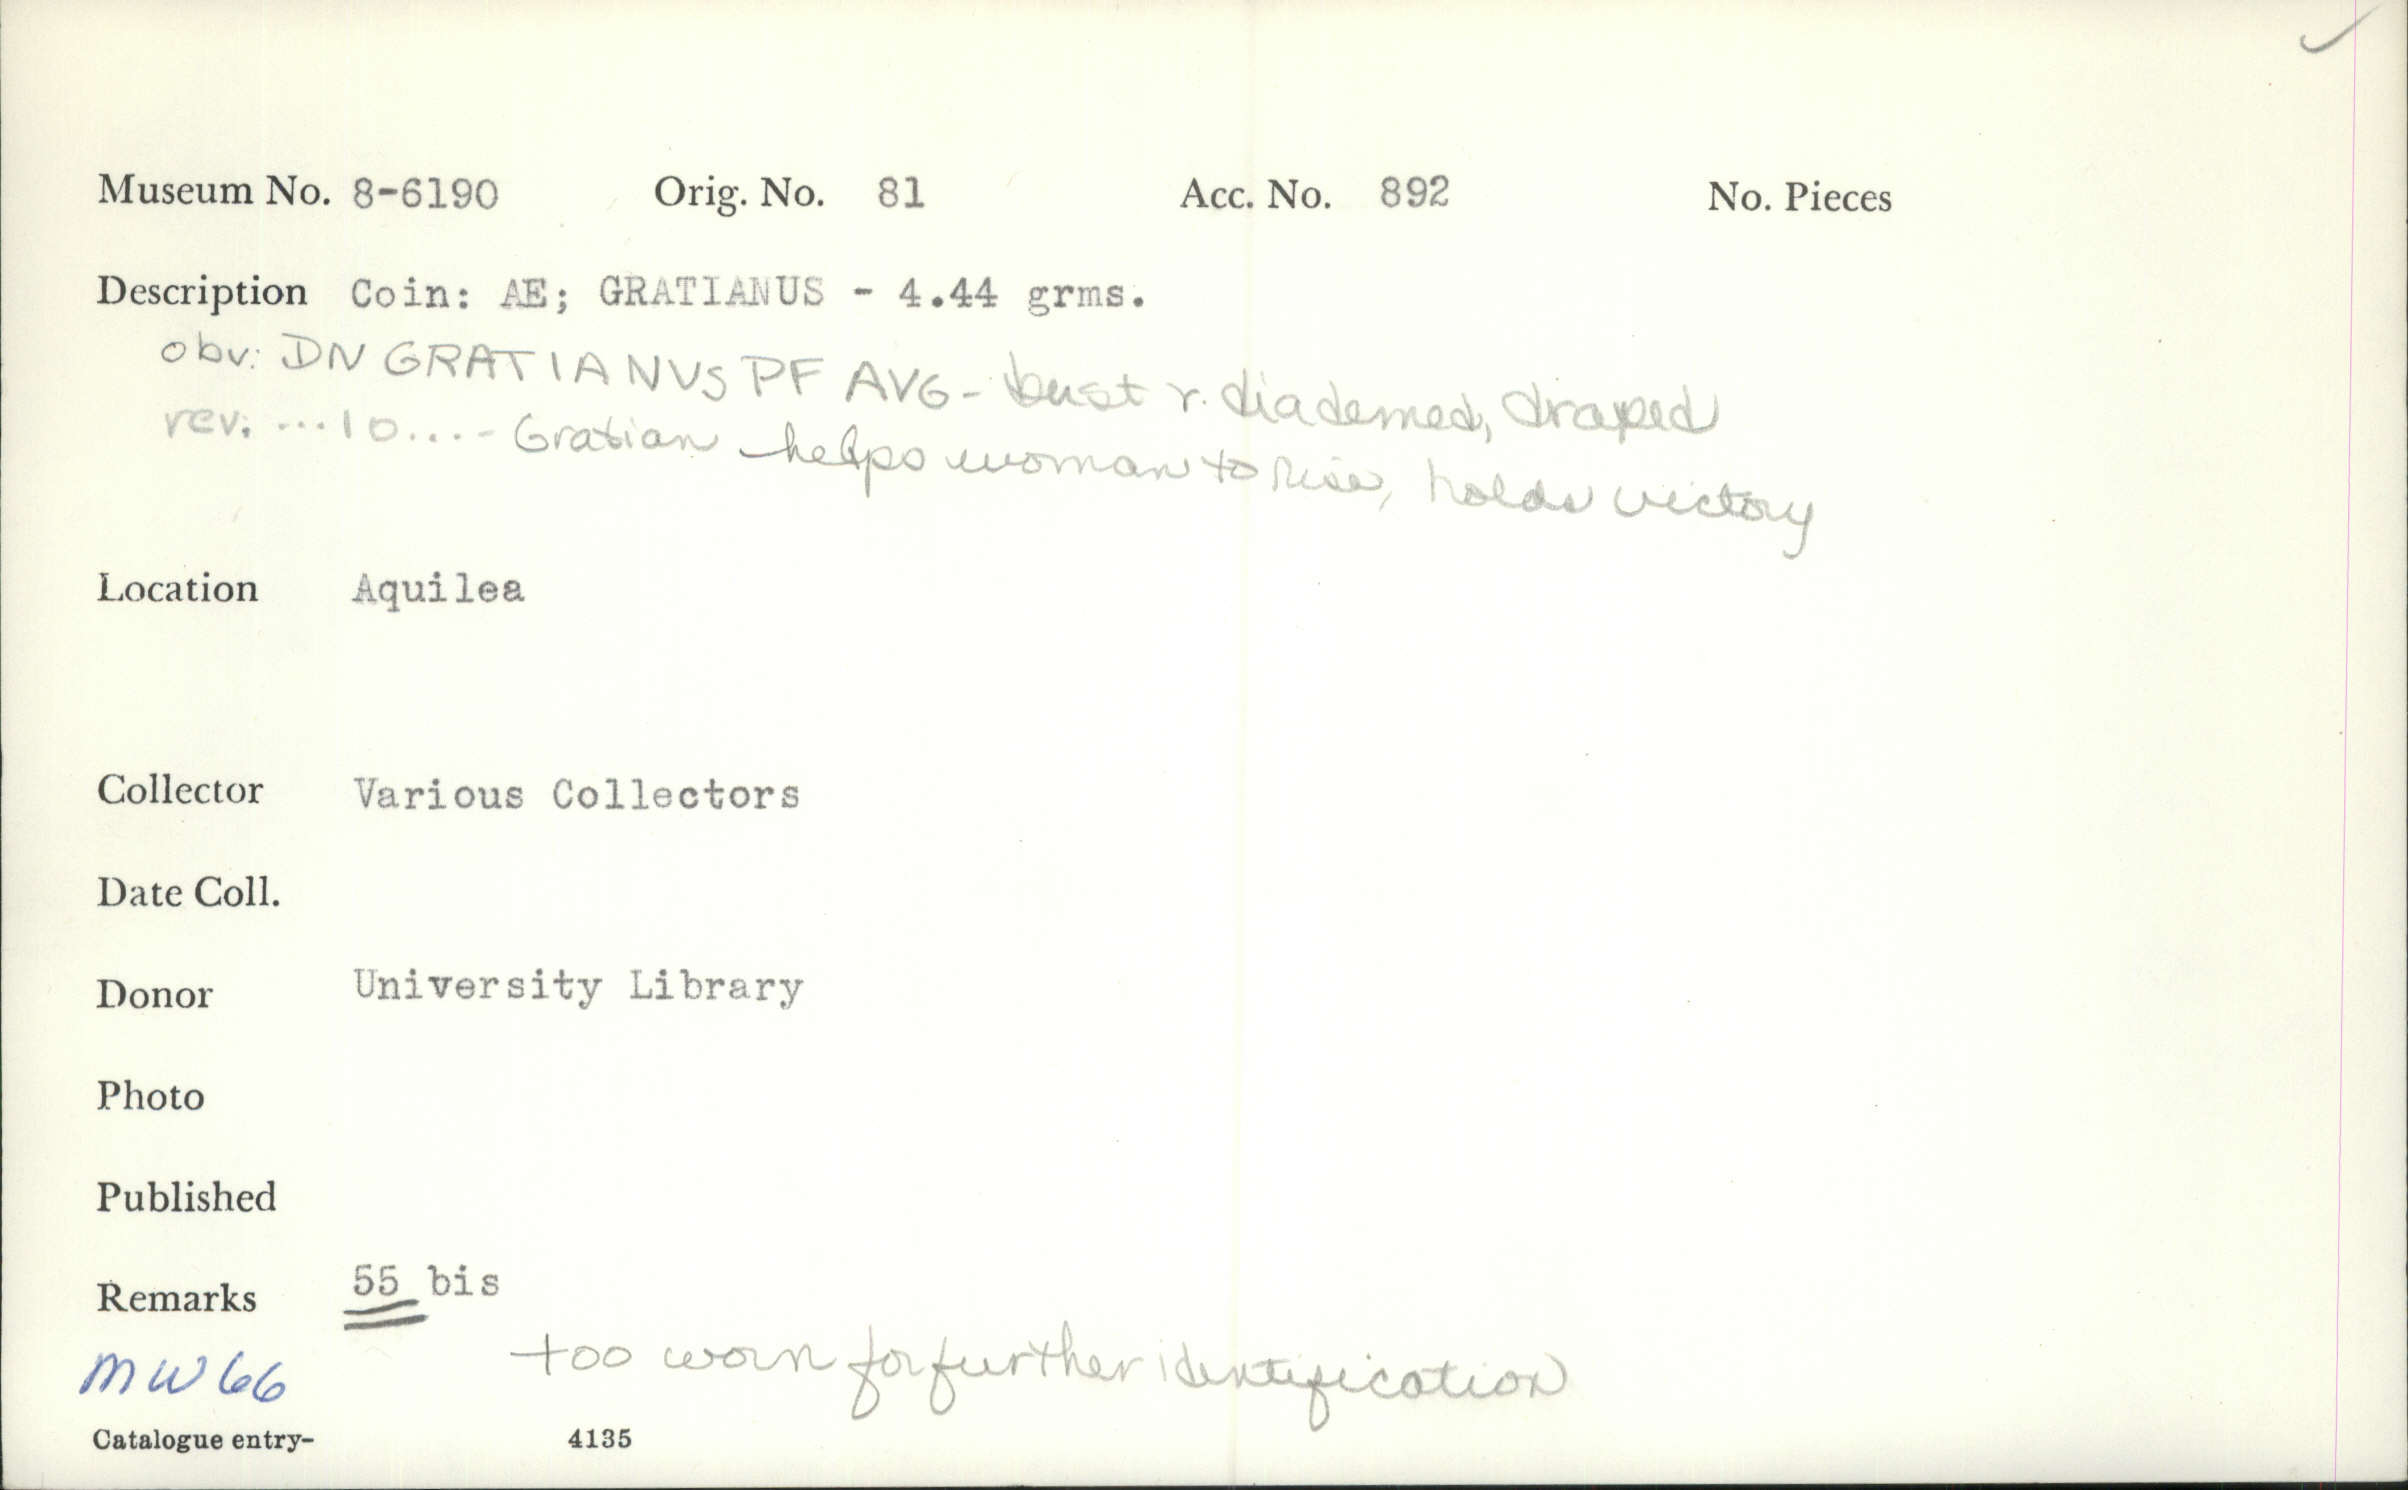 Museum No. 8-6190 Orig. No. 81 Acc. No. 892 No. Pieces
Description Coin: AE; GRATIANUS - 4.44 grms.
obv: DN GRATIANVS PF AVG - bust r. diademed, draped
rev. ...10.... - Gratian helps woman to rise, holds victory
Location Aquilea
Collector Various Collectors
Date Coll.
Donor University Library
Photo
Published
Remarks 55 bis
too worn for further identification
MW66
Catalogue entry- 4135